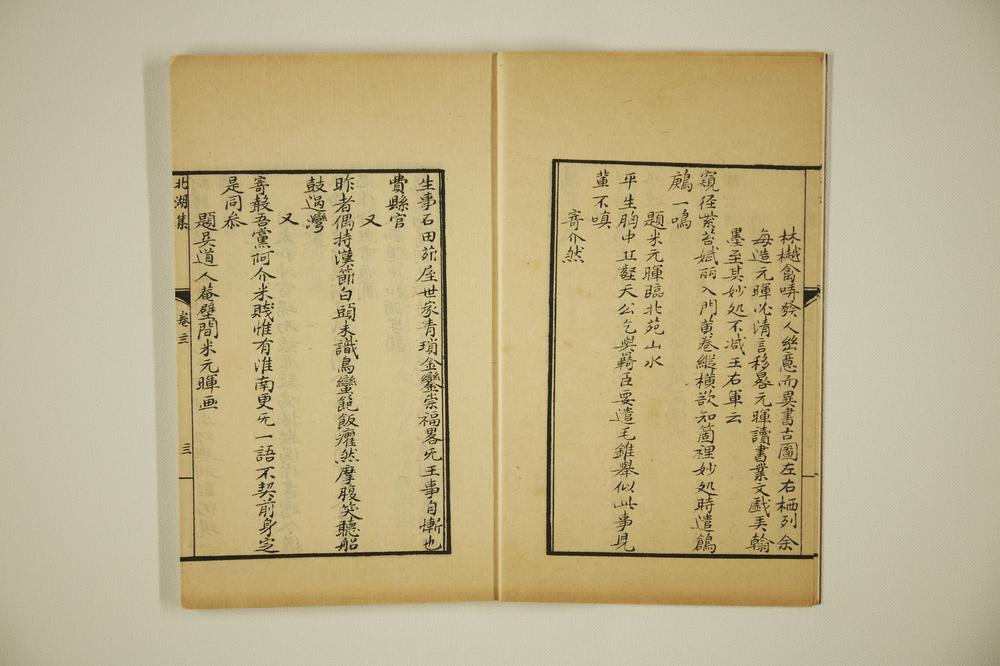 林樾禽哢發人幽意而異書古圖左右栖列余
每造元暉必清言移晷元暉讀書業文戲弄翰
墨至其妙処不减王右軍云
窺径紫苔斌丽入門黄卷縱横欲知箇裡妙処時遣鶬
鶊一鳴
題米元暉臨北苑山水
平生胸中丘壑天公乞與羇臣要遣毛錐舉似此事見
輩不嗔
寄介然
生事石田茆屋世家青瑣金鑾崇福畧无王事自慚也
費縣官
又
昨者偶持漢節白頭未識鳥蠻飽飯癯然摩腹笑聽船
鼓過灣
又
寄敖吾黨何介米賤惟有淮南更无一語不契前身定
是同叅
題吳道人菴壁間米元暉画
北湖集
卷三
三